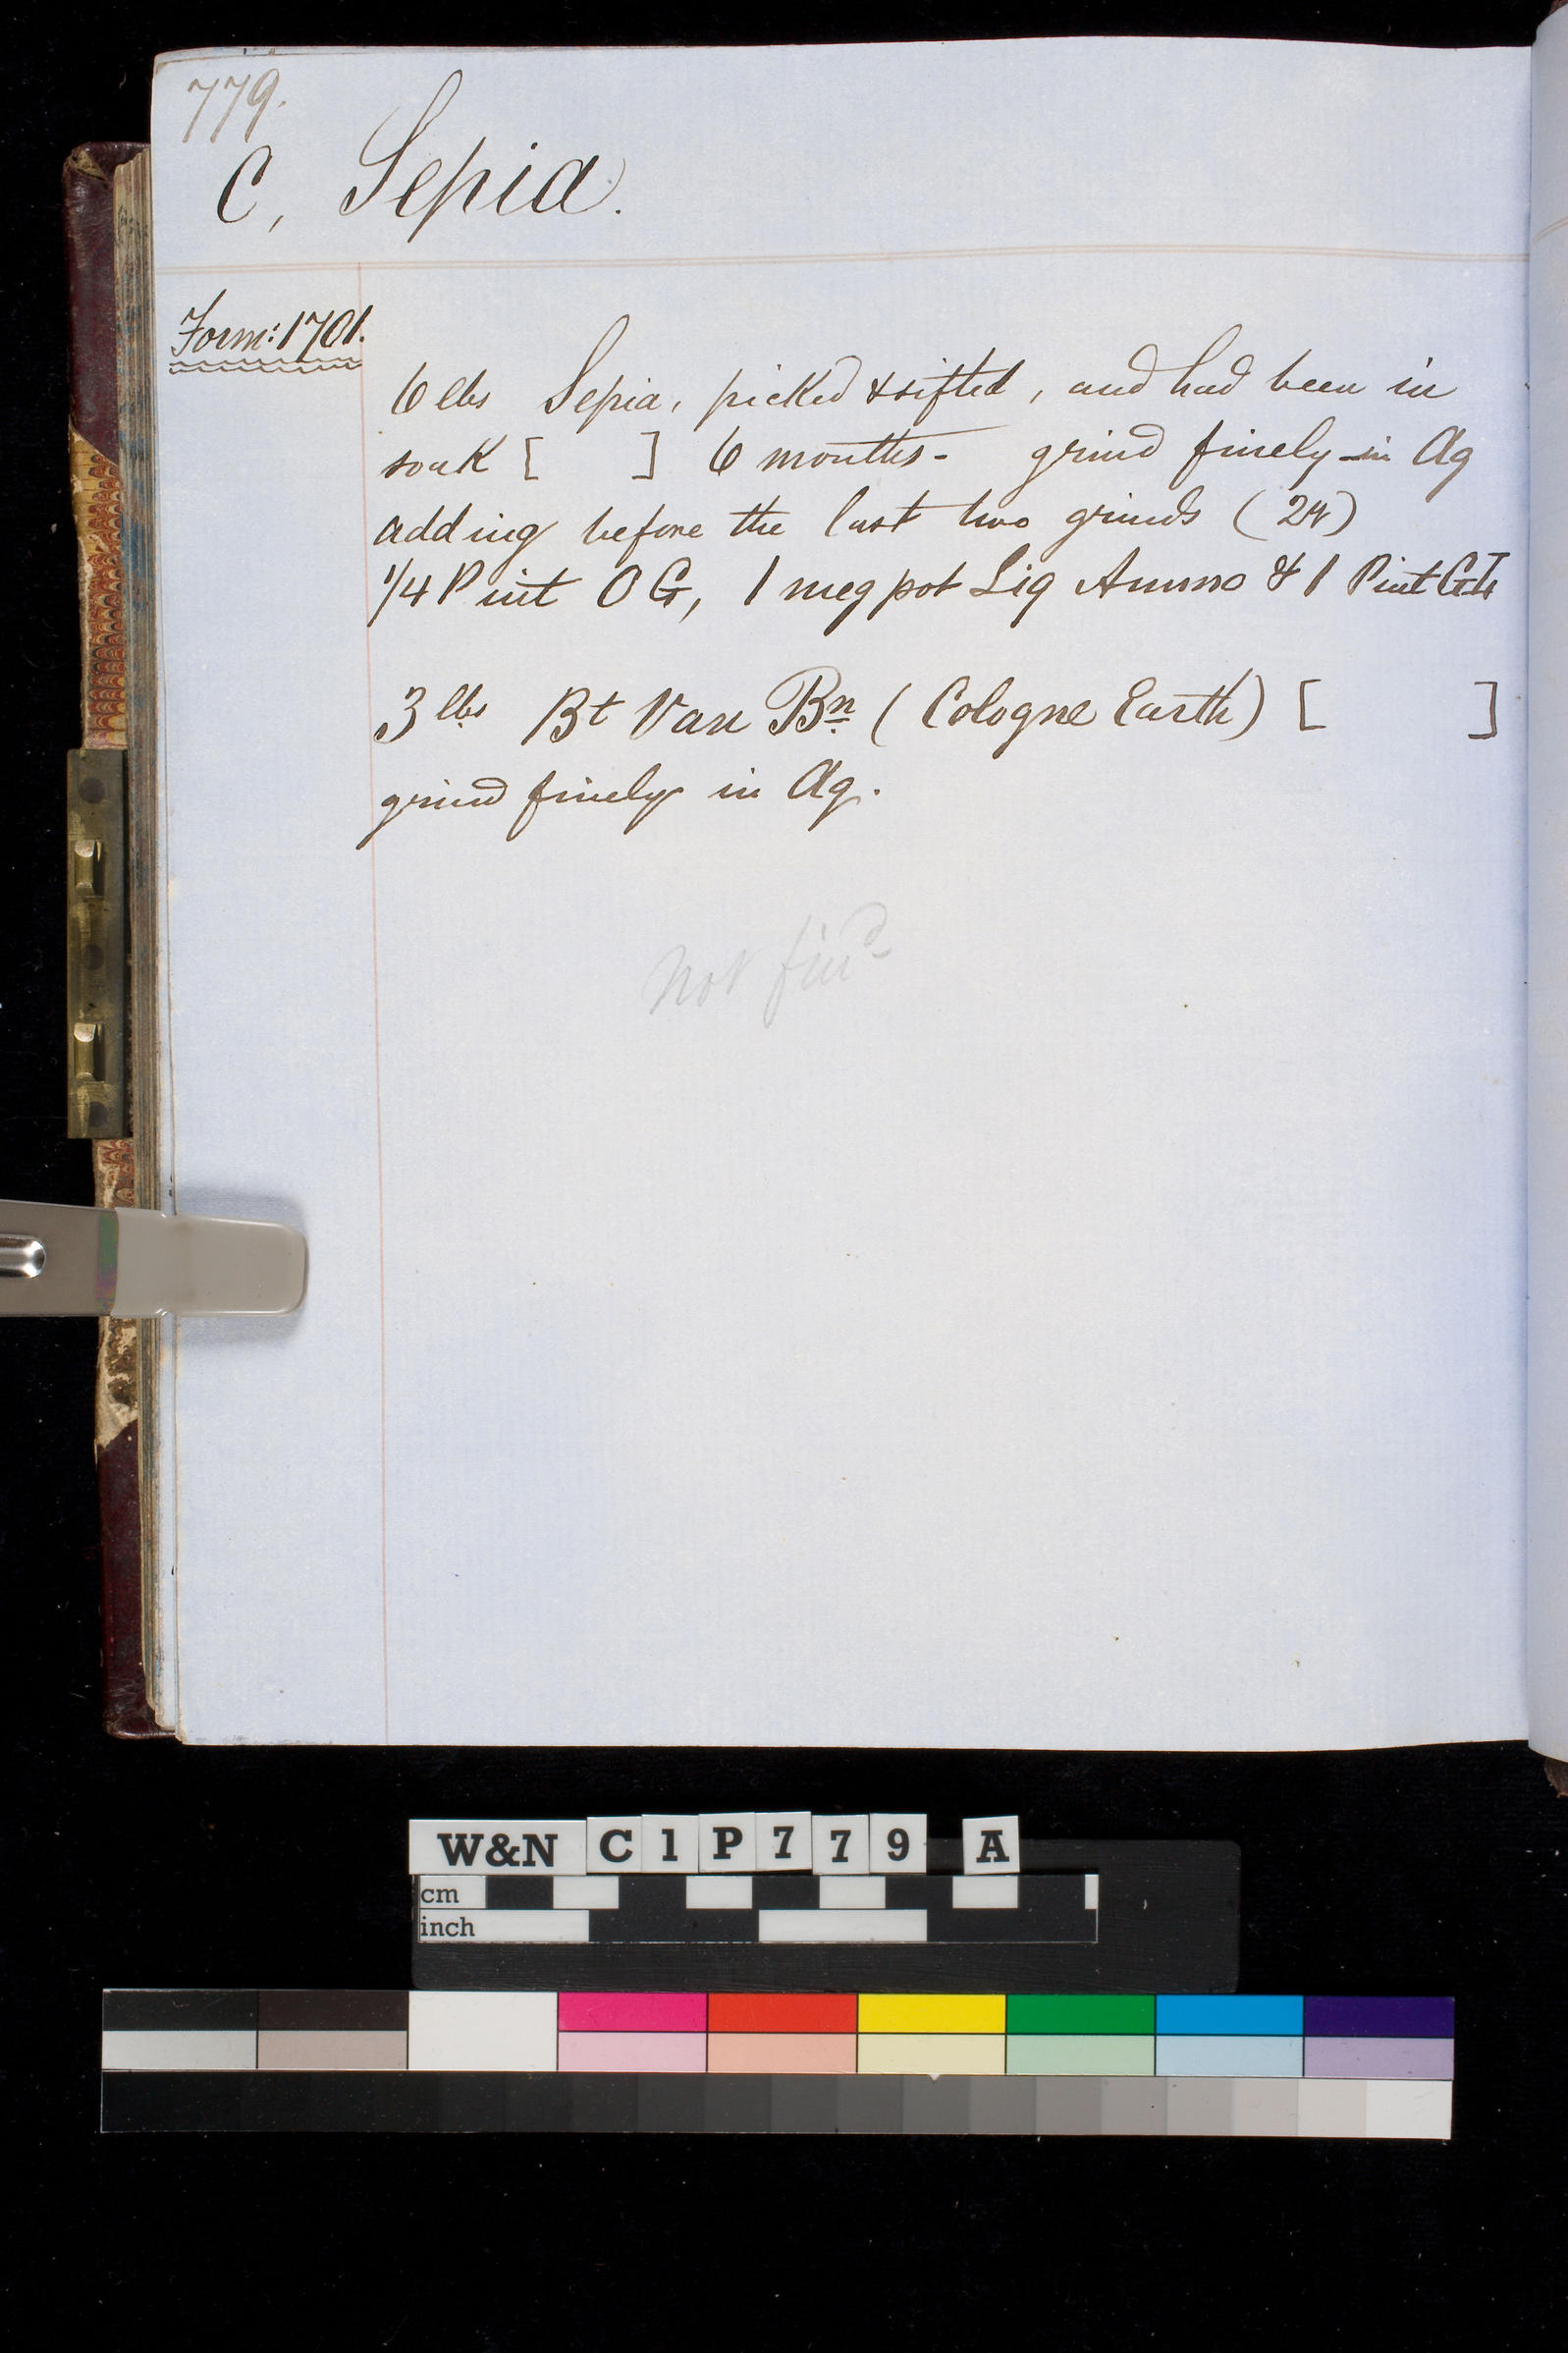 779.
C, Sepia.
Form: 1701.
6 lbs Sepia, picked & sifted, and had been in
soak [ ] 6 months - grind finely in Aq
adding before the last two grinds (24)
1/4 Pint O G, 1 meg pot Liq Ammo & 1 Pint
3 lbs Bt Van Bn (Cologne Earth) [ ]
grind finely in Aq.
not fin d
W&N C1P779 A
cm
inch